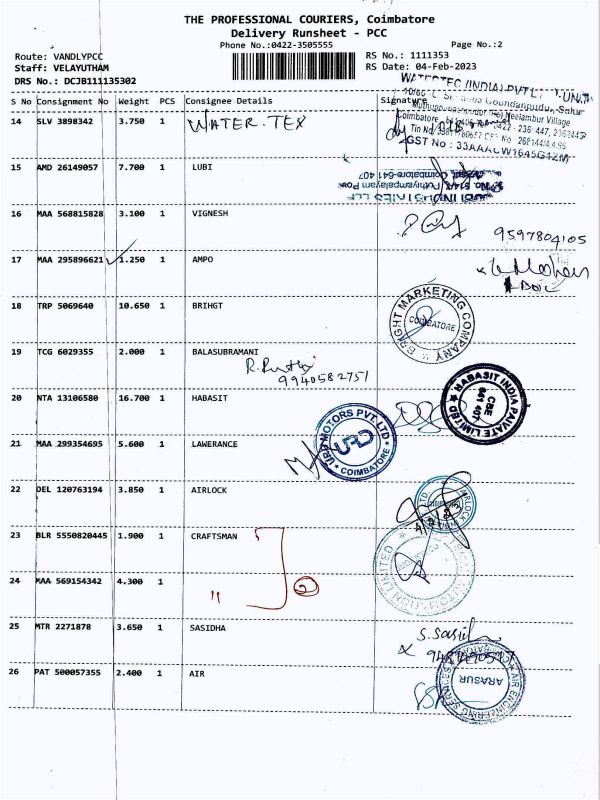 THE PROFESSIONAL COURIERS, Coimbatore
Delivery Runsheet - PCC
Phone No.:0422-3505555 Page No.:2
Route: VANDLYPCC RS No.: 1111353
Staff: VELAYUTHAM RS Date: 04-Feb-2023
DRS No.: DCJB111135302
WATERTEC (INDIA) PVT LT UNIT
S No Consignment No Weight PCS Consignee Details Signature
14 SLV 3898342 3.750 1 WATER.TEX
Neelambur Village
GST No : 33AAACW1645G1ZM
15 AMD 26149057 7.700 1 LUBI
Coimbatore-641 407
LUBI INDUSTRIES LLP
16 MAA 568815828 3.100 1 VIGNESH
9597804105
17 MAA 295896621 1.250 1 AMPO
18 TRP 5069640 10.650 1 BRIHGT
BRIGHT MARKETING COMPANY COIMBATORE
19 TCG 6029355 2.000 1 BALASUBRAMANI
9940582751
20 NTA 13106580 16.700 1 HABASIT
HABASIT INDIA PRIVATE LIMITED CBE 641 407
21 MAA 299354695 5.600 1 LAWERANCE
URD MOTORS PVT. LTD COIMBATORE URD
22 DEL 120763194 3.850 1 AIRLOCK
23 BLR 5550820445 1.900 1 CRAFTSMAN
24 MAA 569154342 4.300 1 "
25 MTR 2271878 3.650 1 SASIDHA
26 PAT 500057355 2.400 1 AIR
ARASUR